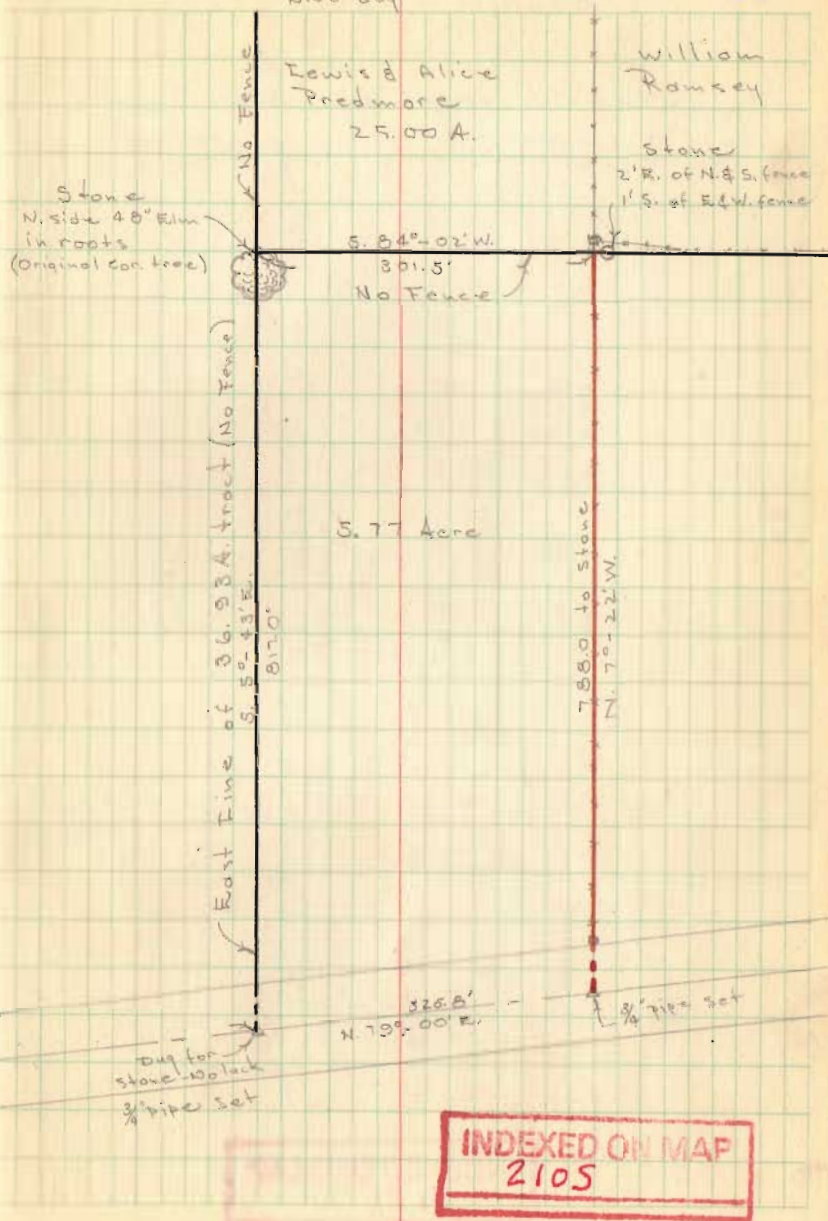 No Fence
Lewis & Alice
Predmore
25.00 A.
William
Ramsey
Stone
2' E. of N. & S. fence
1' S. of E & W. fence
Stone
N. side 48" Elm
in roots
(Original cor. tree)
S. 84°-02' W.
301.5'
No Fence
East Line of 36.93 A. tract (No Fence)
S. 5°-43' E.
812.0'
5.77 Acre
788.0 to stone
N. 7°-22' W.
326.8'
N. 79°-00' E.
3/4" pipe set
Dug for
stone-No luck
3/4" pipe set
INDEXED ON MAP
2105